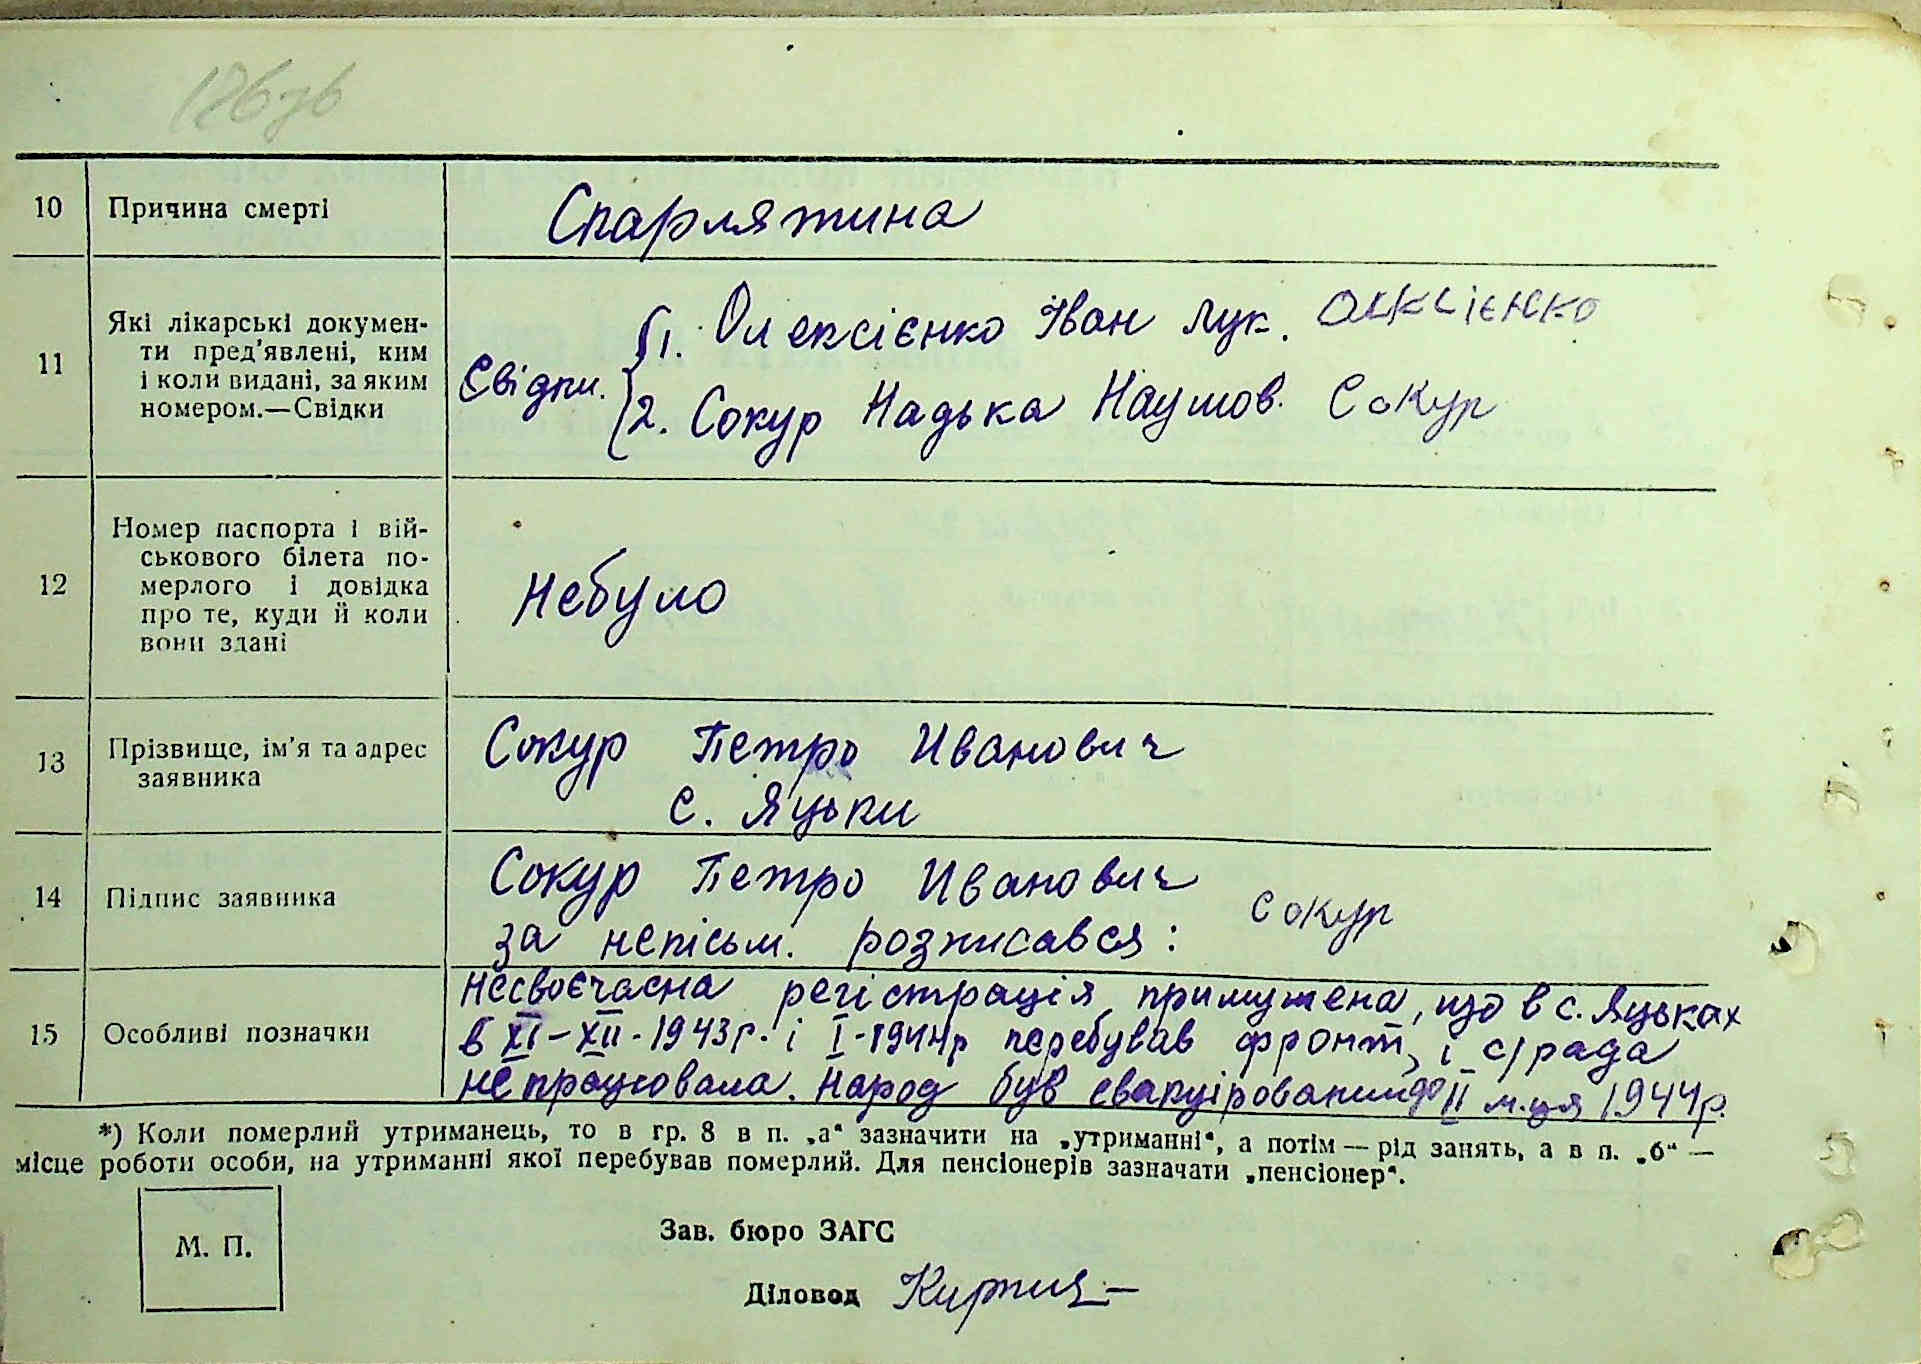 126 зв
10 Причина смерті Скарлятина
11 Які лікарські докумен-
ти пред'явлені, ким
і коли видані, за яким
номером.—Свідки
Свідки.
1. Олексієнко Іван Лук. Олексієнко
2. Сокур Надька Наумов. Сокур
12 Номер паспорта і вій-
ськового білета по-
мерлого і довідка
про те, куди й коли
вони здані
Небуло
13 Прізвище, ім'я та адрес
заявника
Сокур Петро Иванович
с. Яцьки
14 Підпис заявника
Сокур Петро Иванович
за непісьм. розписався: Сокур
15 Особливі позначки
Несвоєчасна регістрація примушена, що в с. Яцьках
в XI–XII-1943 р. і I-1944р перебував фронт, і с/рада
непрацювала. Народ був евакуірований до II м.ця 1944 р.
*) Коли померлий утриманець, то в гр. 8 в п. „а“ зазначити на „утриманні“, а потім — рід занять, а в п. „б“ —
місце роботи особи, на утриманні якої перебував померлий. Для пенсіонерів зазначати „пенсіонер“.
М. П.
Зав. бюро ЗАГС
Діловод